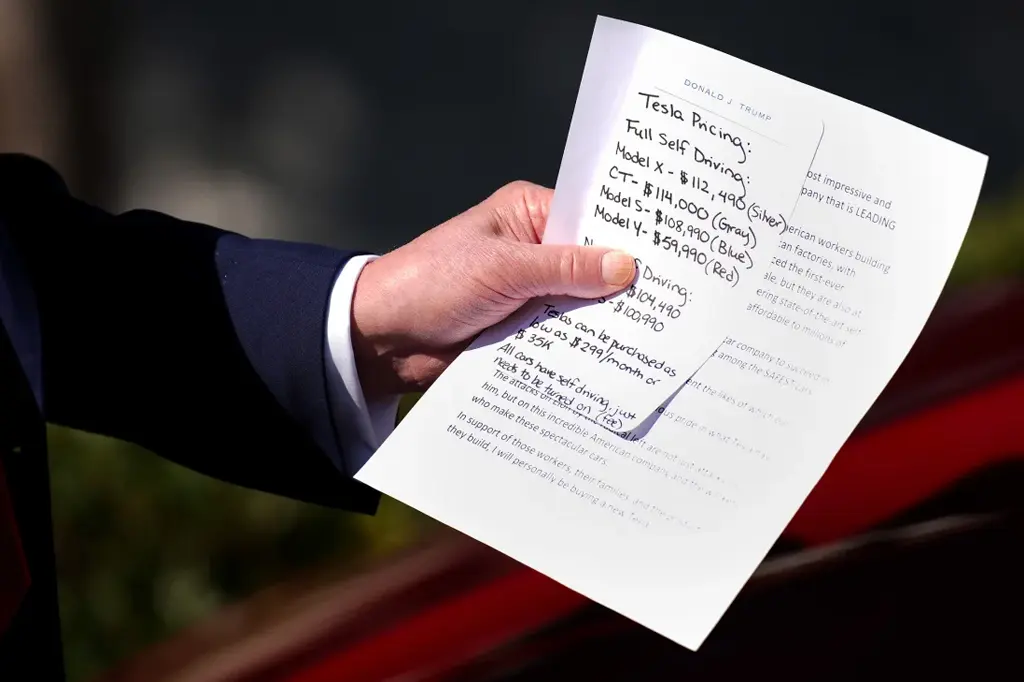 DONALD J. TRUMP
Tesla Pricing:
Full Self Driving:
Model X - $112,490 (Silver)
CT - $114,000 (Gray)
Model S - $108,990 (Blue)
Model Y - $59,990 (Red)
Driving:
$104,490
$100,990
Teslas can be purchased as
low as $299/month or
$35K
All cars have self driving, just
needs to be turned on (fee)
impressive and
that is LEADING
workers building
factories, with
the first-ever
but they are also at
state-of-the-art self
affordable to millions of
company to succeed in
among the SAFEST cars
the likes of which
pride in what
The attacks on are not just attacks
him, but on this incredible American company, and the
who make these spectacular cars.
In support of those workers, their families, and the product
they build, I will personally be buying a new Tesla